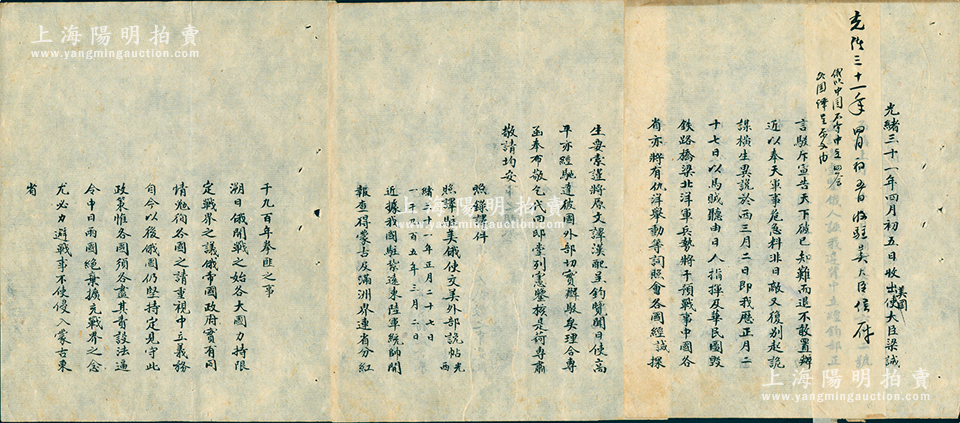 光緒三十一年四月初五日收出使美國大臣梁誠
光緒三十一年四月初五日收駐美大臣信一件
俄以中國不守中立四層
次國緯呈示文由
言駁斥宣告天下彼已知難而退不敢置辯
近以奉天軍事危急料非日敵又復別起詭
謀橫生異說於西三月二日即我歷正月二
十七日以馬賊聽由日人指揮及華民圖毀
鉄路橋梁北洋軍兵勢將干預戰事中國各
省亦將有仇洋舉動等詞照會各國經誠探
生要豪謹將原文譯漢配呈鈞贊聞日使高
平亦經馳達彼國外部切實辦駁矣理合專
函奉布敬乞代回邸堂列憲鑒核是荷專肅
敬請均安
照錄譯件
照譯駐美俄使交美外部說帖 光
緒三十一年正月二十七日 西
一千九百五年三月二日
近據我國駐紮遠東陸軍統帥開
報查得蒙古及滿洲界連省分紅
千九百年拳匪之事
溯日俄開戰之始各大國力持限
定戰界之議俄帝國政府實有同
情勉徇各國之請重視中立義務
自今以後俄國仍堅持定見守此
政策惟各國須各盡其責設法逼
令中日兩國絕棄擴充戰界之念
尤必力避戰事不使侵入蒙古東
省
上海陽明拍賣
www.yangmingauction.com
上海陽明拍賣
www.yangmingauction.com